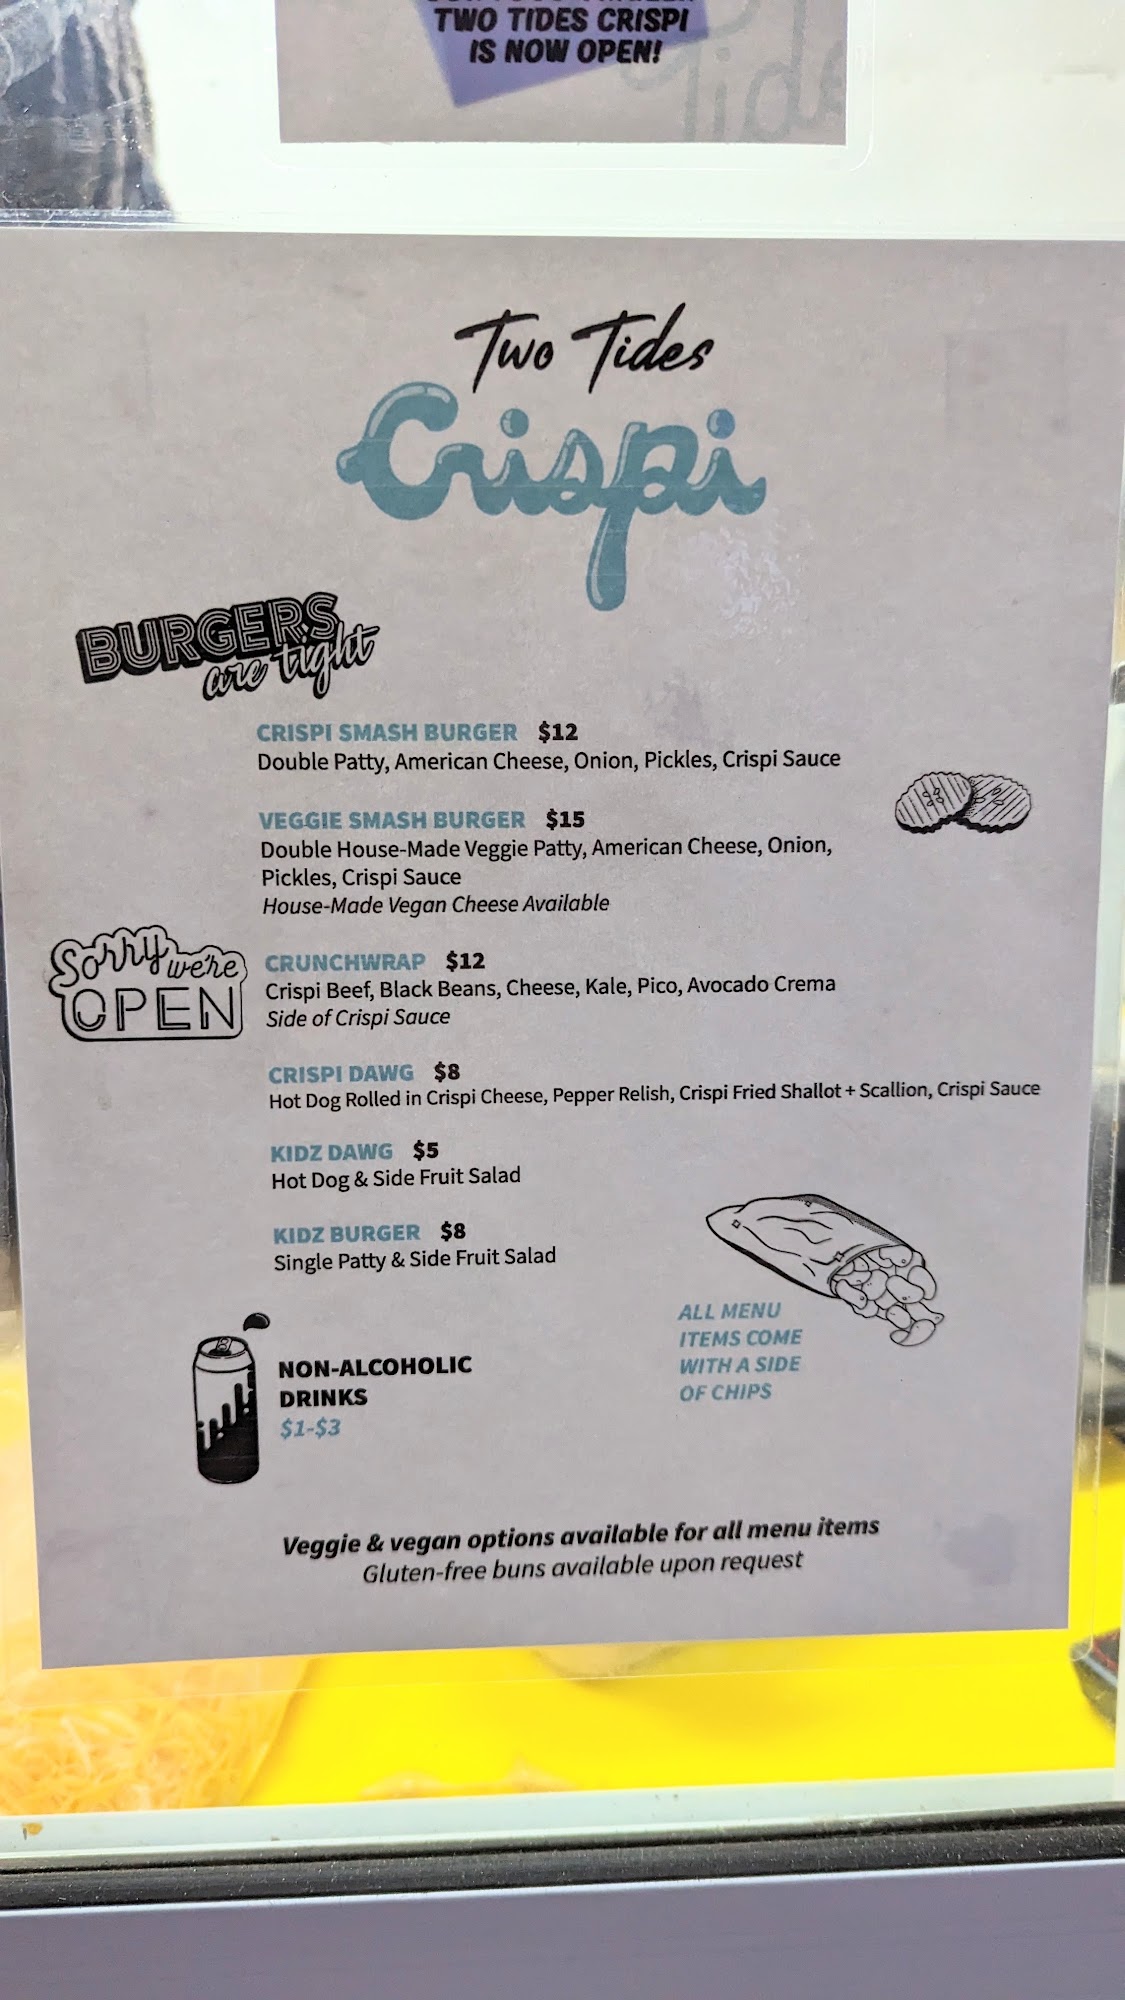 TWO TIDES CRISPI
IS NOW OPEN!
Two Tides
Crispi
BURGERS
are tight
CRISPI SMASH BURGER $12
Double Patty, American Cheese, Onion, Pickles, Crispi Sauce
VEGGIE SMASH BURGER $15
Double House-Made Veggie Patty, American Cheese, Onion,
Pickles, Crispi Sauce
House-Made Vegan Cheese Available
Sorry we're
OPEN
CRUNCHWRAP $12
Crispi Beef, Black Beans, Cheese, Kale, Pico, Avocado Crema
Side of Crispi Sauce
CRISPI DAWG $8
Hot Dog Rolled in Crispi Cheese, Pepper Relish, Crispi Fried Shallot + Scallion, Crispi Sauce
KIDZ DAWG $5
Hot Dog & Side Fruit Salad
KIDZ BURGER $8
Single Patty & Side Fruit Salad
ALL MENU
ITEMS COME
WITH A SIDE
OF CHIPS
NON-ALCOHOLIC
DRINKS
$1-$3
Veggie & vegan options available for all menu items
Gluten-free buns available upon request